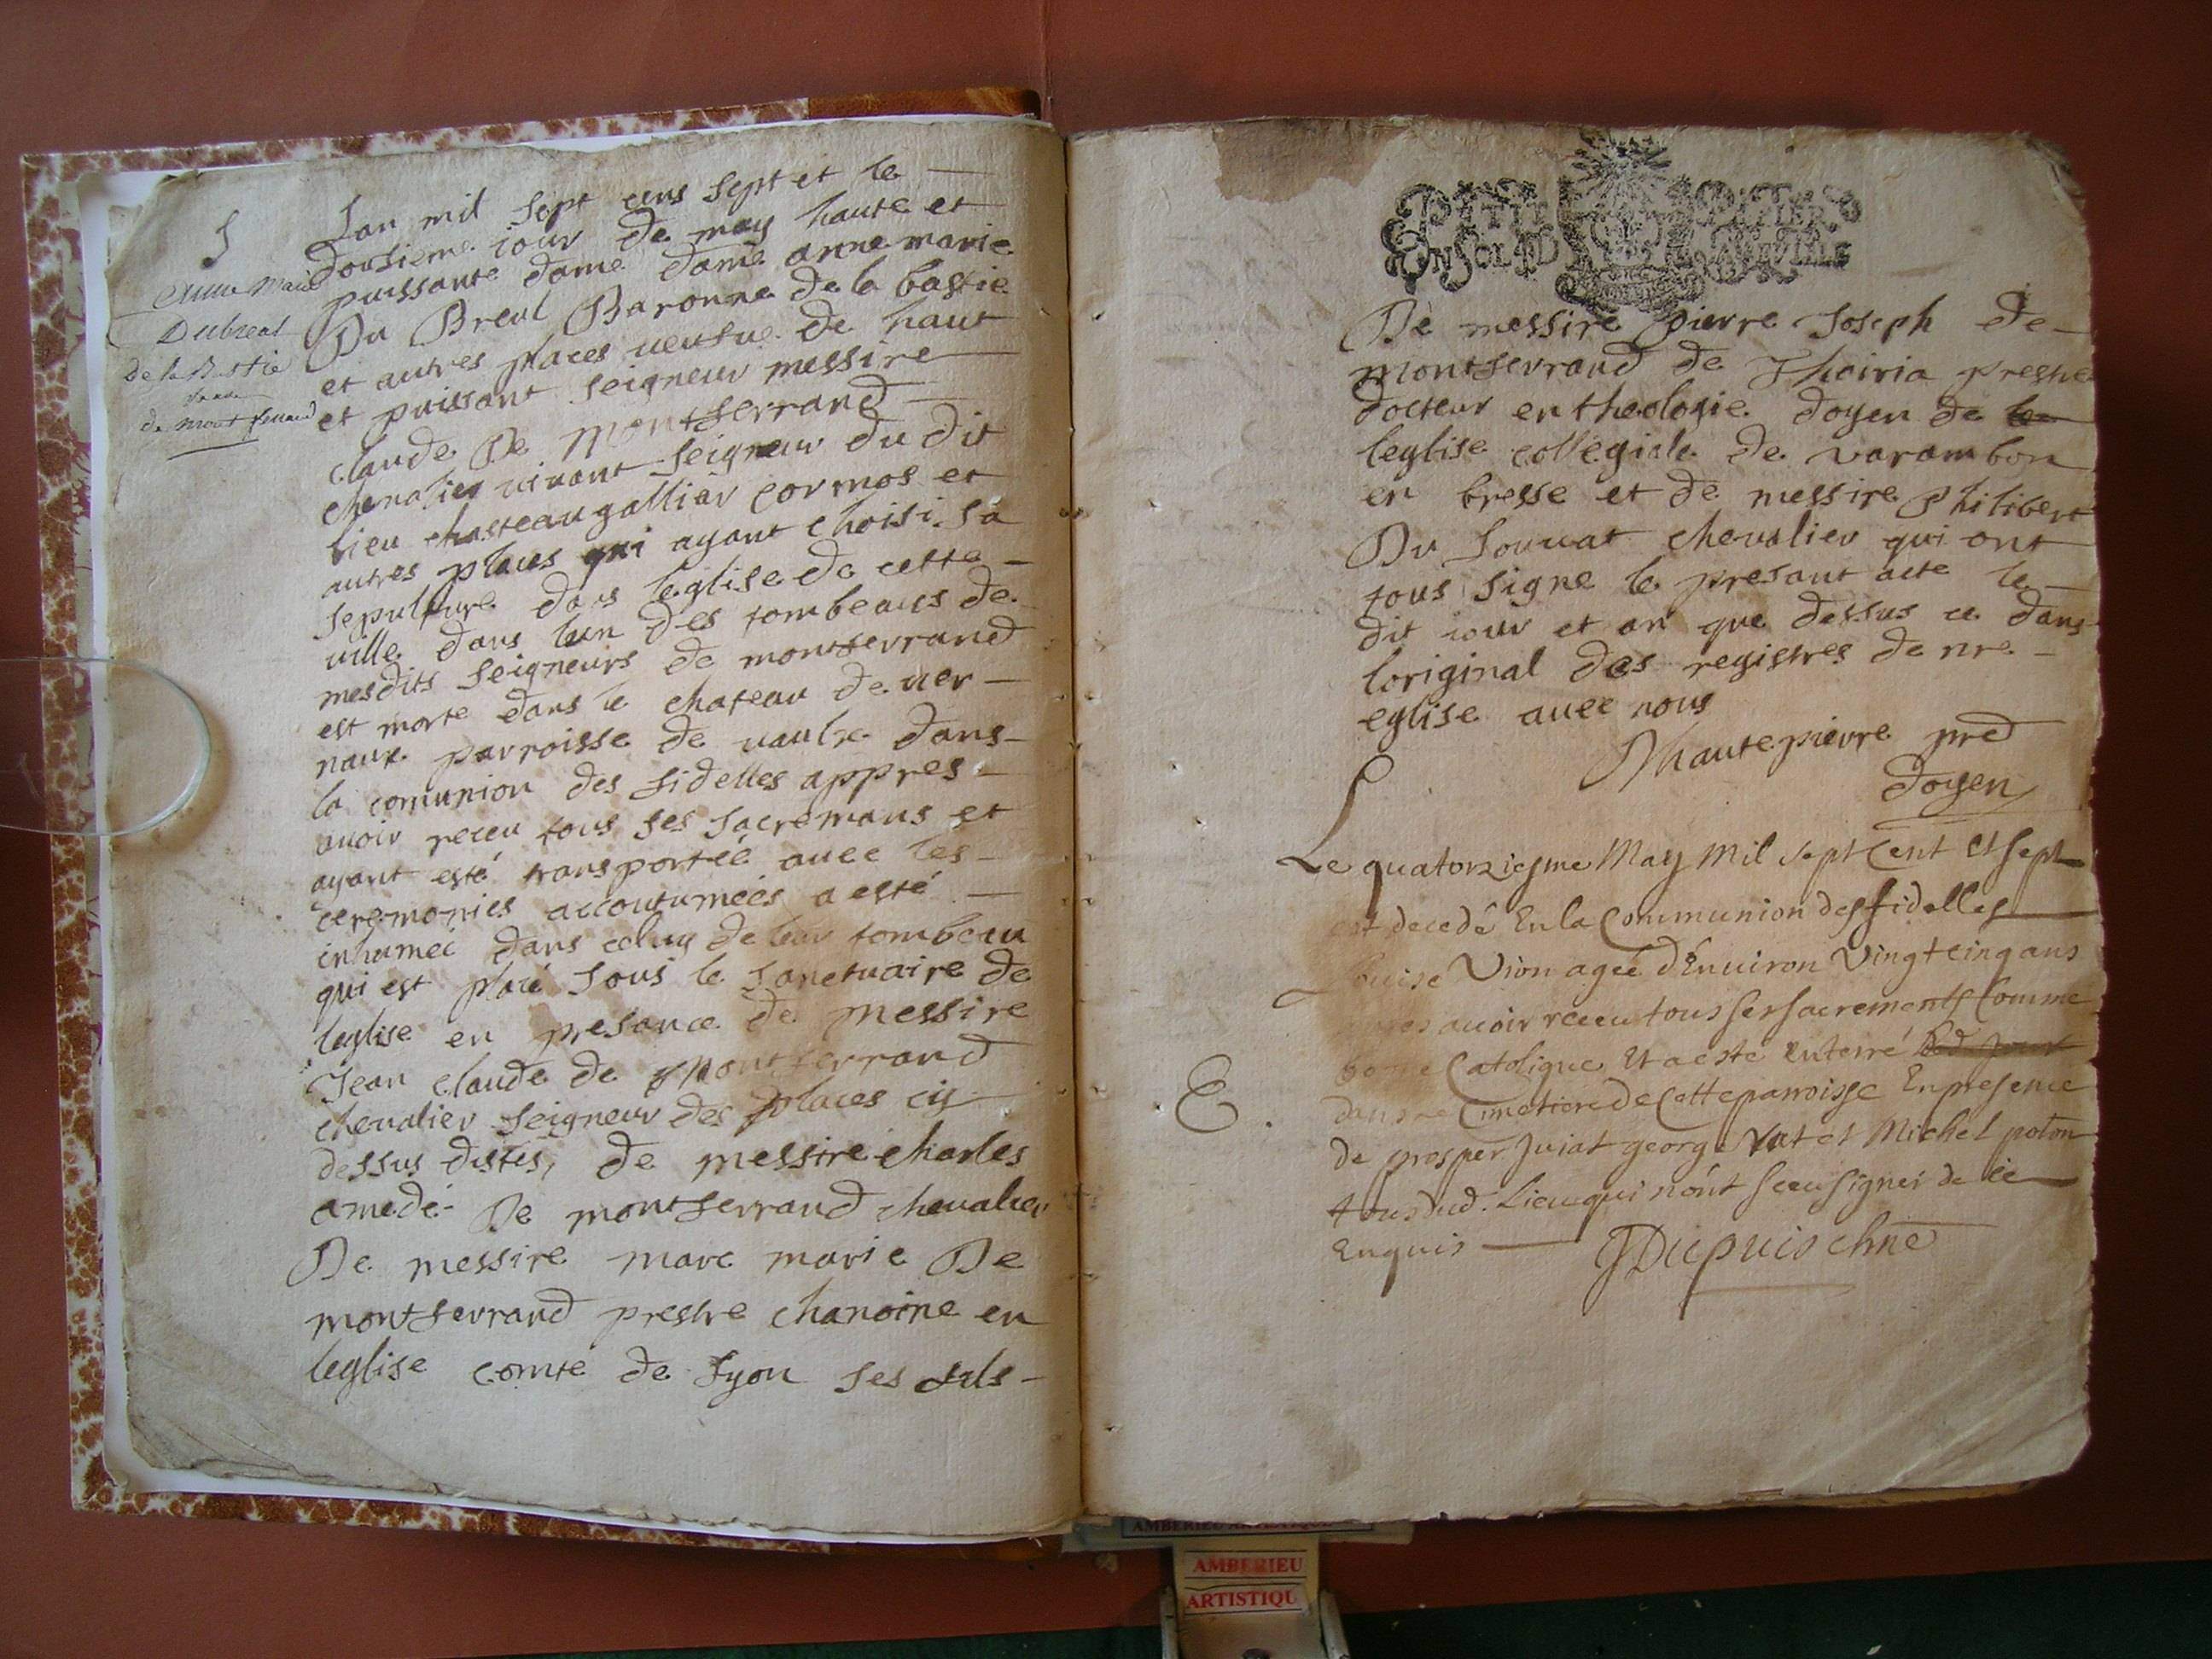 Lan mil sept cens sept et le
dousieme iour de may haute et
puissante dame dame anne marie
Du Breul Baronne de la bastie
et autres places ueufue de haut
et puissant seigneur messire
claude De montferrand
chevalier uivant seigneur du dit
lieu chasteaugallier cormos et
autres places qui ayant choisi sa
sepulture dans leglise de cette
uille dans lun des tombeaus de
mesdits seigneurs de montferrand
est morte dans le chateau de uer
naux parroisse de uaulx dans
la comunion des fidelles appres
auoir receu tous ses sacremans et
ayant esté transportée auec les
ceremonies accoutumées a esté
inhumée dans celuy de leur tombeau
qui est placé sous le sanctuaire de
leglise en presance de messire
Jean claude de montferrand
chevalier seigneur des places cy
dessus distes, de messire charles
amedé De montferrand chevalier
De messire marc marie De
montferrand prestre chanoine en
leglise comte de Lyon ses fils
Dubreul
De la Bastie
de montferrand
PETIT PAPIER
De messire pierre Joseph de
montferrand de Thoiria prestre
docteur en theologie doyen de
leglise collegiale de varambon
en bresse et de messire philibert
Du Louuat chevalier qui ont
tous signe le presant acte le
dit iour et an que dessus ce dans
loriginal des registres de nre
eglise auec nous
Dhautepierre pred
doyen
Le quatorziesme May Mil sept Cent et sept
est decedé En la Communion des fidelles
Louise Vion ageé d'Enuiron Vingt cinq ans
apres auoir receu tous ses sacrements Comme
bonne Catolique Et a esté enterré
dans le Cimetiere de Cette parroisse En presence
de prosper Juiat george Vat et Michel poton
tous dud. Lieu qui n'ont sceu signer de ce
Enquis JDupuis chne
E.
AMBERIEU ARTISTIQUE
AMBERIEU
ARTISTIQU